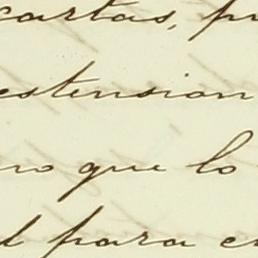 cartas, pr
estension
no que lo
l para en